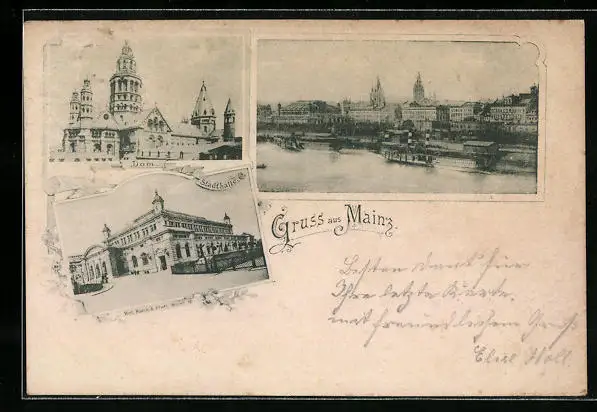 Dom.
Stadthalle
Gruss aus Mainz.
Besten Dank für
Ihre letzte Karte.
mit freundlichem Gruß